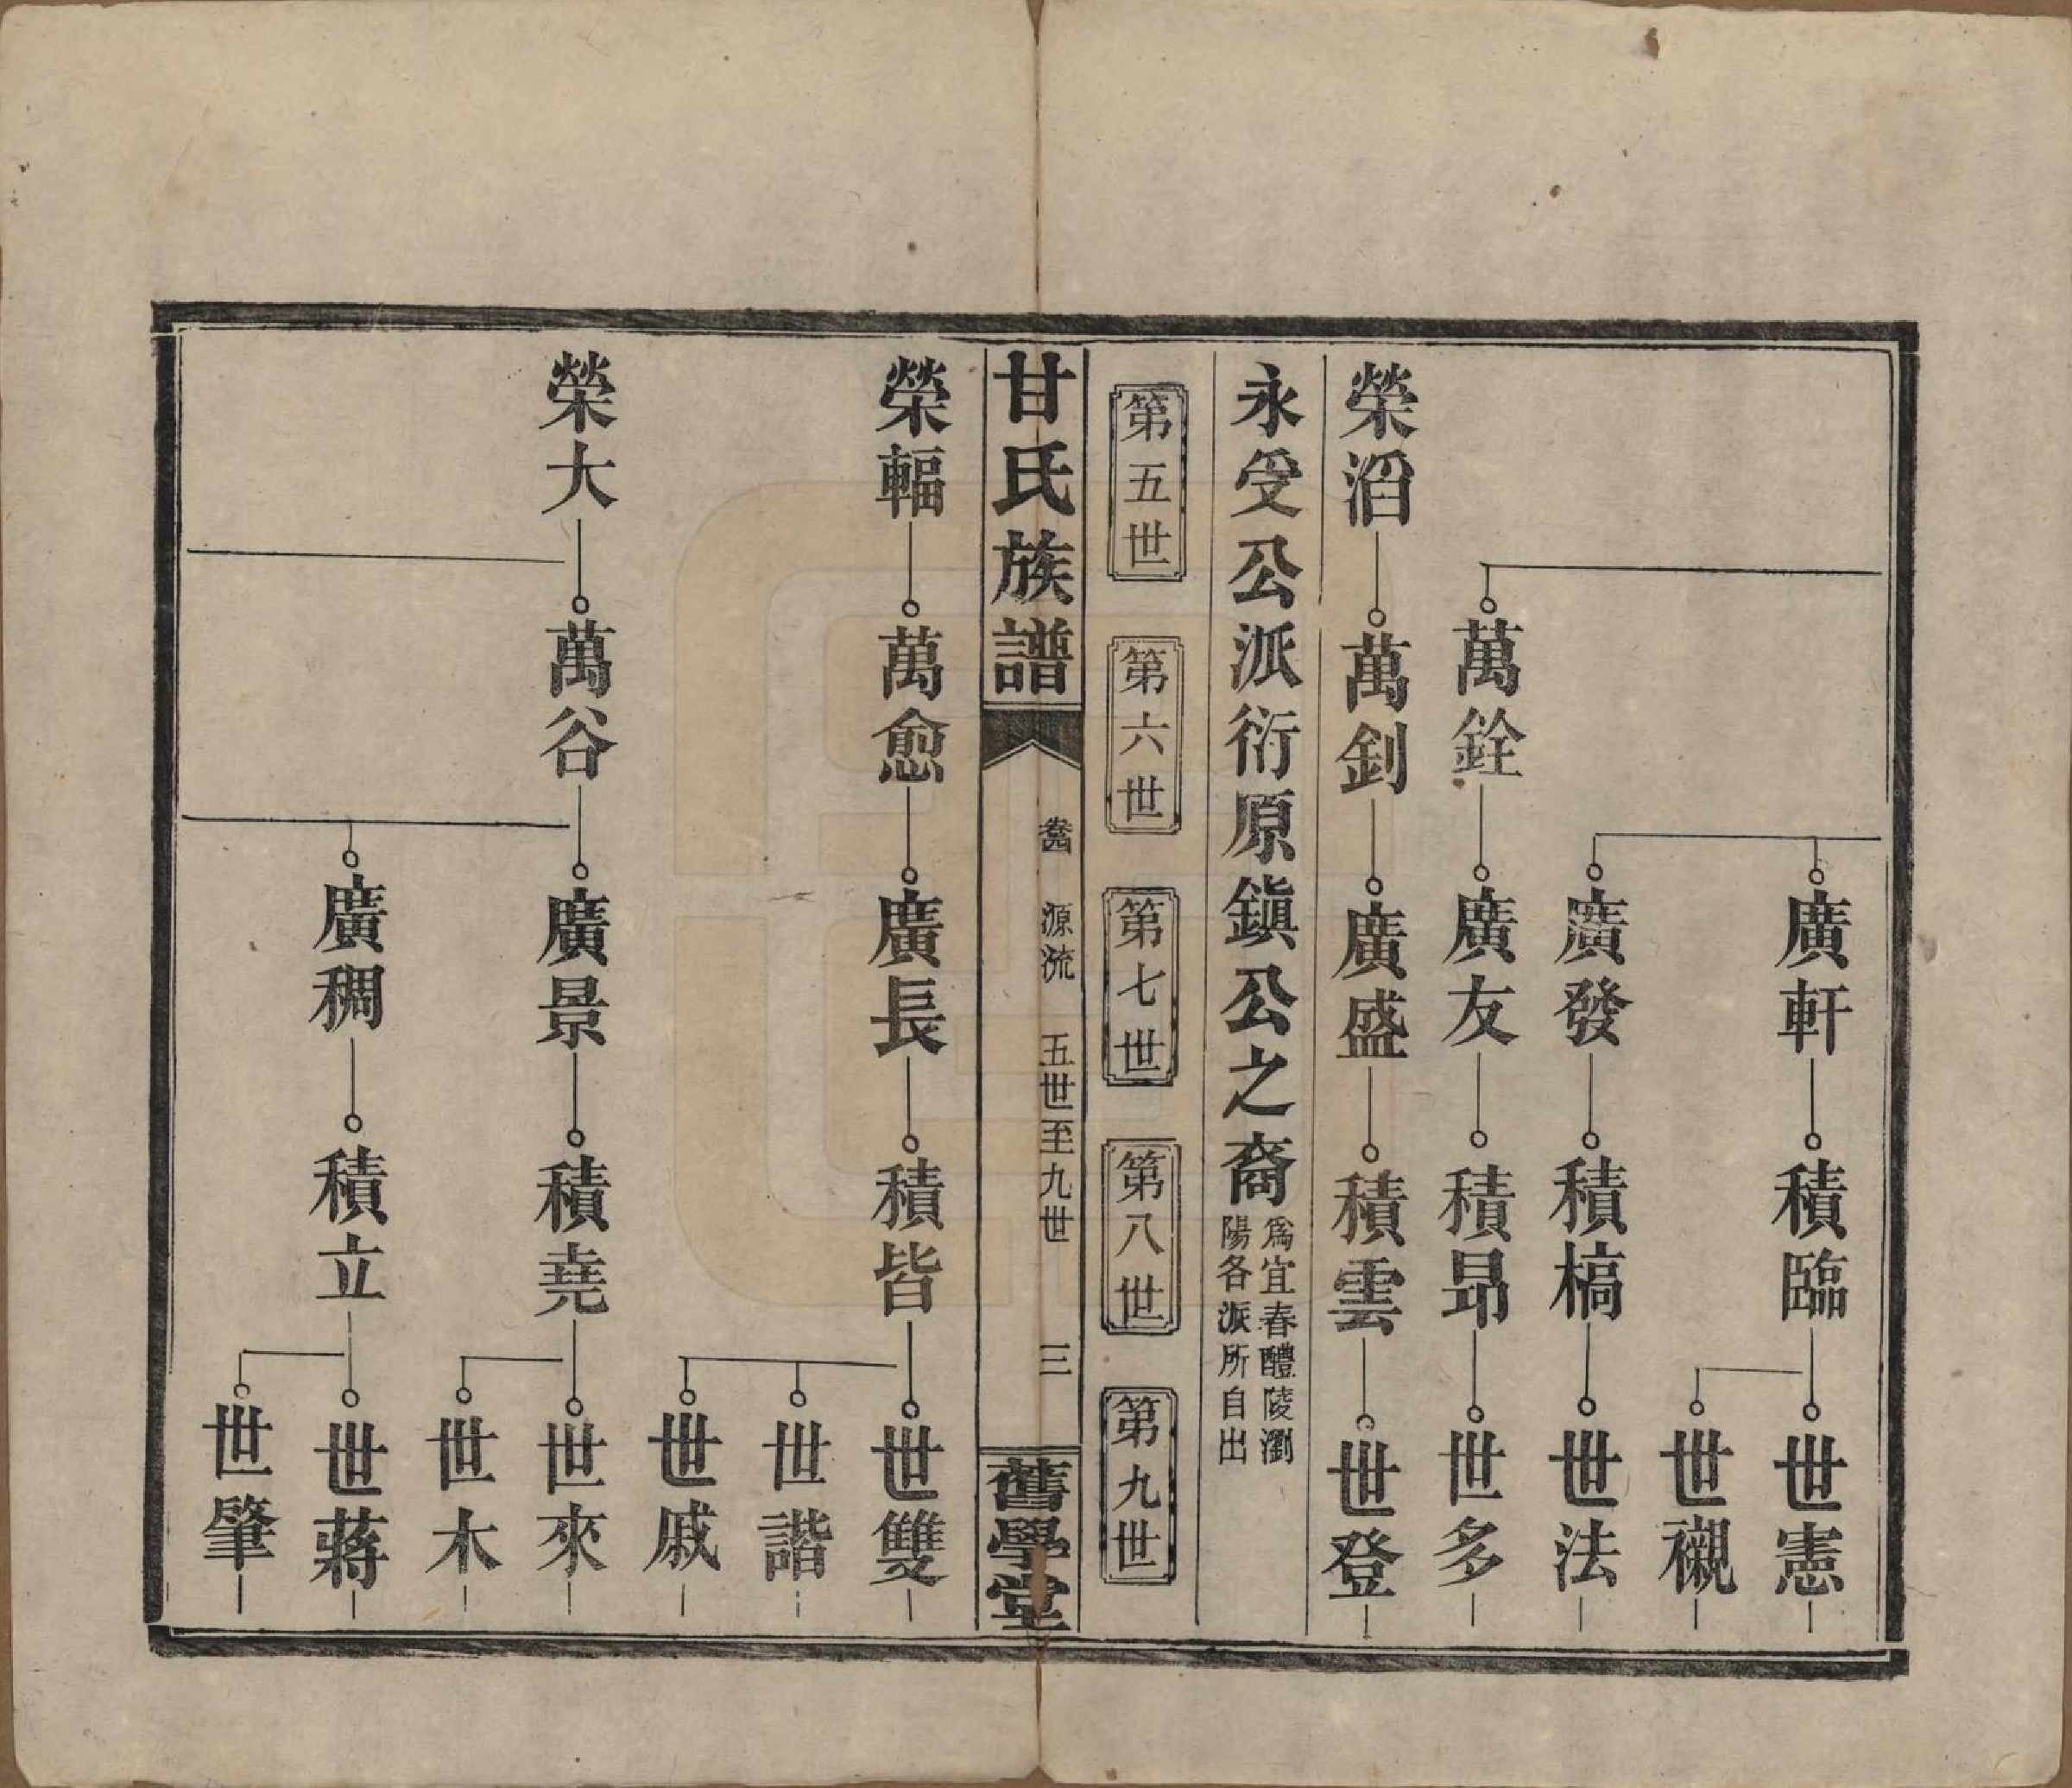 廣軒 積臨 世憲
世襯
廣發 積槁 世法
萬銓 廣友 積昂 世多
榮滔 萬釗 廣盛 積雲 世登
永受公派衍原鎮公之裔
為宜春醴陵瀏
陽各派所自出
第五世 第六世 第七世 第八世 第九世
甘氏族譜 卷四 源流 五世至九世 三 舊學堂
榮輻 萬愈 廣長 積皆 世雙
世諧
世戚
榮大 萬谷 廣景 積堯 世來
世木
廣稠 積立 世蔣
世肇